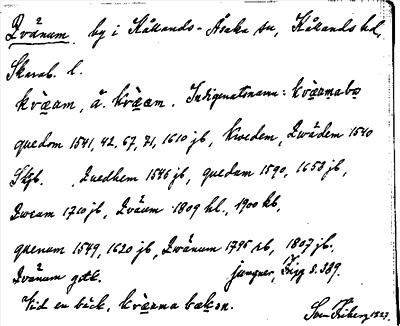 Qvänum. by i Kållands-Åsaka sn, Kållands hd,
Skarab. l.
kvä̀am, ä. kvä̀am. Indigenatsnamn: kvä̀rmabo
quedom 1541, 42, 67, 71, 1610 jb, Kwedem, Qwädem 1540
Skjb. Quedhem 1546 jb, quedam 1590, 1653 jb,
Qweum 1710 jb, Qväum 1809 hl., 1900 kb,
quenum 1549, 1620 jb, Qwänum 1795 rb, 1807 jb.
Qvänum gdk. jungner, Frigg s. 389.
Vid en bäck, kvä̀rma bækən.
Sven Friberg 1927.